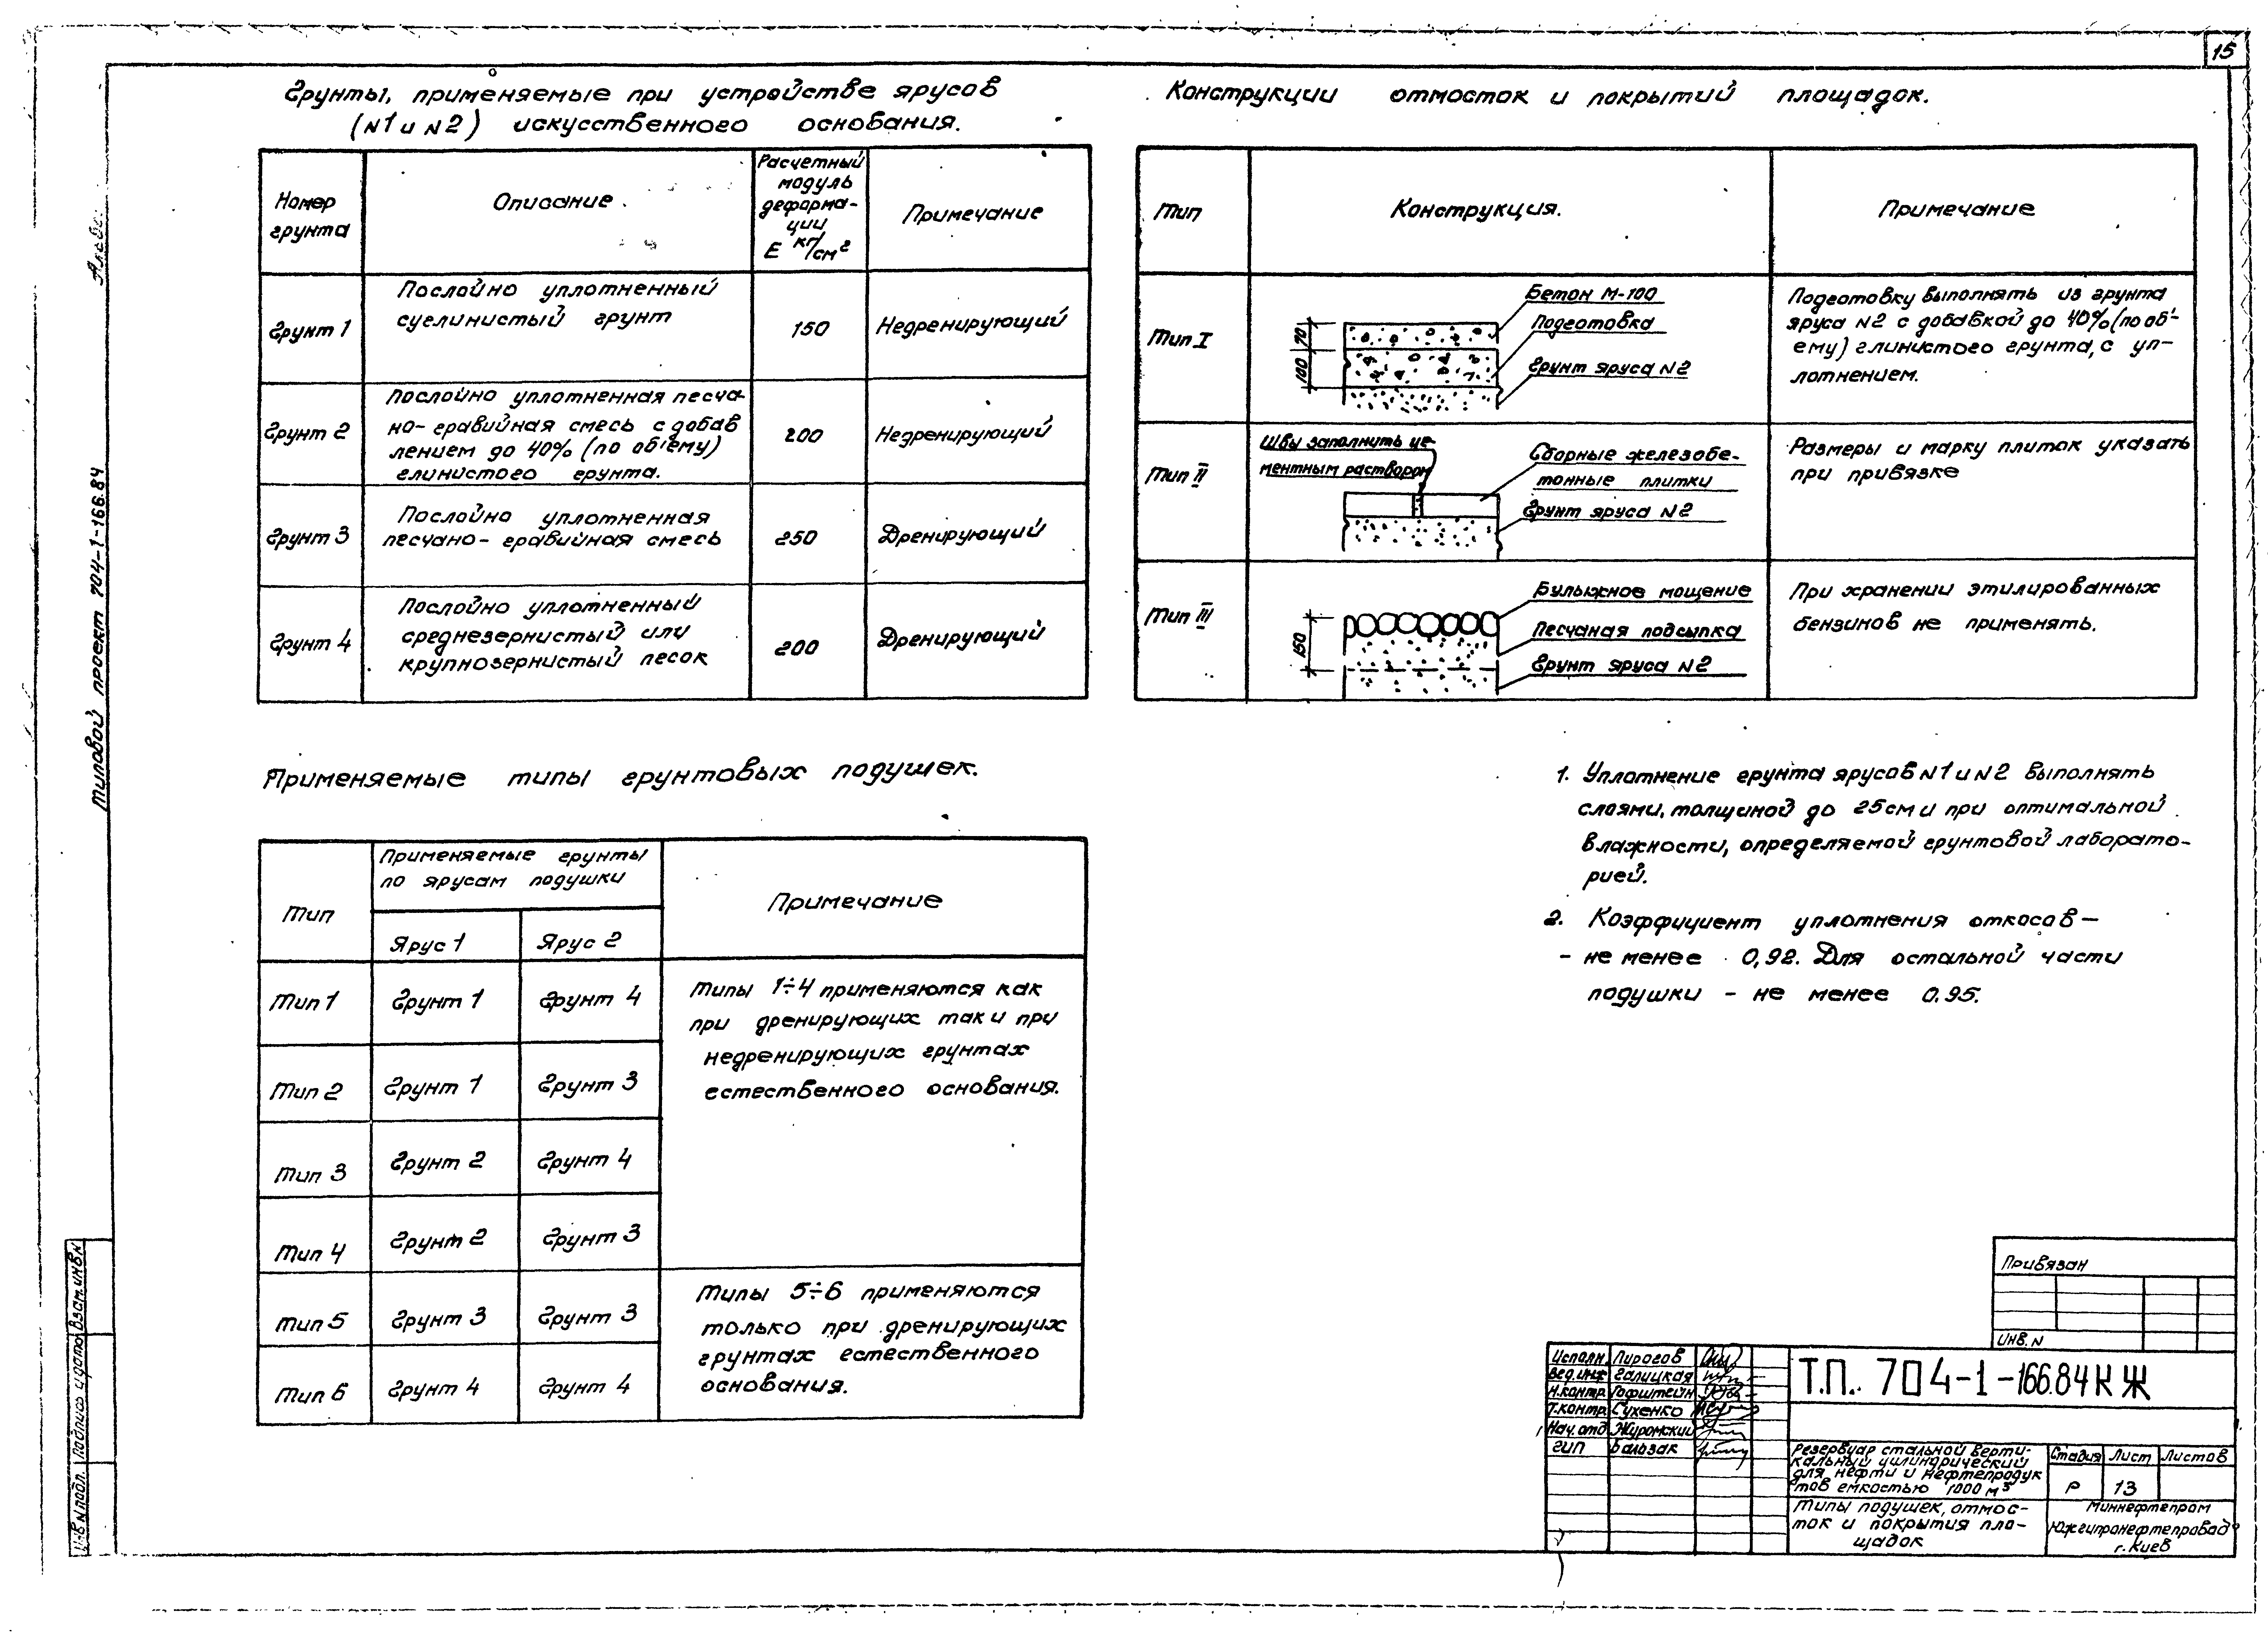 15
Грунты, применяемые при устройстве ярусов
(N1 и N2) искусственного основания.
Номер
грунта
Описание
Расчетный
модуль
деформа-
ции
E кг/см²
Примечание
Грунт 1
Послойно уплотненный
суглинистый грунт
150
Недренирующий
Грунт 2
Послойно уплотненная песча-
но-гравийная смесь с добав
лением до 40% (по об'ему)
глинистого грунта.
200
Недренирующий
Грунт 3
Послойно уплотненная
песчано-гравийная смесь
250
Дренирующий
Грунт 4
Послойно уплотненный
среднезернистый или
крупнозернистый песок
200
Дренирующий
Конструкции отмосток и покрытий площадок.
Тип
Конструкция.
Примечание
Тип I
70
100
Бетон М-100
Подготовка
Грунт яруса N2
Подготовку выполнять из грунта
яруса N2 с добавкой до 40% (по об'-
ему) глинистого грунта, с уп-
лотнением.
Тип II
Швы заполнить це-
ментным раствором
Сборные железобе-
тонные плитки
Грунт яруса N2
Размеры и марку плиток указать
при привязке
Тип III
150
Булыжное мощение
Песчаная подсыпка
Грунт яруса N2
При хранении этилированных
бензинов не применять.
Применяемые типы грунтовых подушек.
Тип
Применяемые грунты
по ярусам подушки
Ярус 1
Ярус 2
Примечание
Тип 1
Грунт 1
Грунт 4
Тип 2
Грунт 1
Грунт 3
Тип 3
Грунт 2
Грунт 4
Тип 4
Грунт 2
Грунт 3
Типы 1÷4 применяются как
при дренирующих так и при
недренирующих грунтах
естественного основания.
Тип 5
Грунт 3
Грунт 3
Тип 6
Грунт 4
Грунт 4
Типы 5÷6 применяются
только при дренирующих
грунтах естественного
основания.
1. Уплотнение грунта ярусов N1 и N2 выполнять
слоями, толщиной до 25см и при оптимальной
влажности, определяемой грунтовой лаборато-
рией.
2. Коэффициент уплотнения откосов –
– не менее 0,92. Для остальной части
подушки – не менее 0.95.
Типовой проект 704-1-166.84
Инв N подл.
Подпись и дата
Взам.инв.N
Привязан
Инв. N
Исполн. Пирогов
Вед.инж Галицкая
Н.контр. Гофштейн
Т.контр. Сухенко
Нач.отд. Журомский
ГИП Бальзак
Т.П. 704-1-166.84 КЖ
Резервуар стальной верти-
кальный цилиндрический
для нефти и нефтепродук
тов емкостью 1000 м³
Стадия Лист Листов
Р 13
Типы подушек, отмос-
ток и покрытия пло-
щадок
Миннефтепром
Южгипронефтепровод
г. Киев